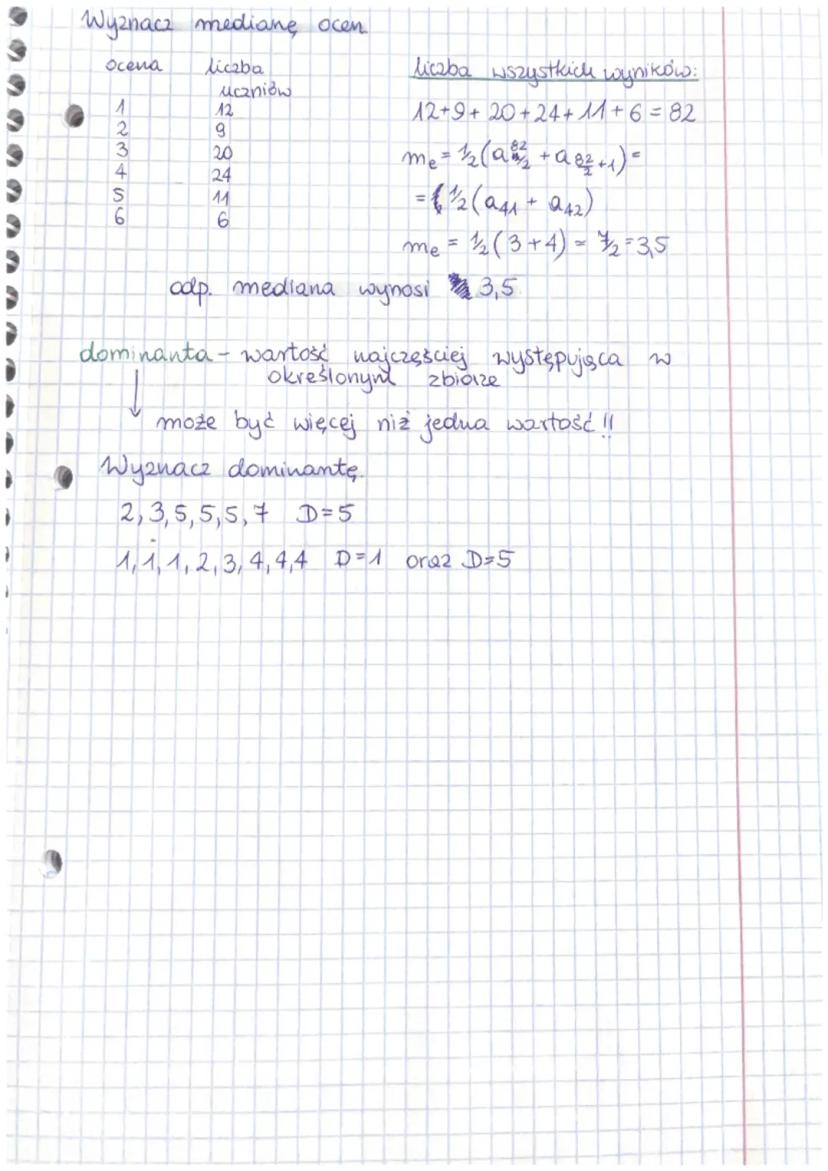 Wyznacz medianę ocen
ocena liczba uczniów
1 12
2 9
3 20
4 24
5 11
6 6
liczba wszystkich wyników:
12+9+20+24+11+6=82
me = 1/2(a 82/2 + a 82/2 +1) =
= 1/2(a41 + a42)
me = 1/2(3+4) = 7/2 = 3,5
odp. mediana wynosi 3,5
dominanta - wartość najczęściej występująca w
określonym zbiorze
może być więcej niż jedna wartość!!
Wyznacz dominantę.
2,3,5,5,5,7 D=5
1,1,1,2,3,4,4,4 D=1 oraz D=5